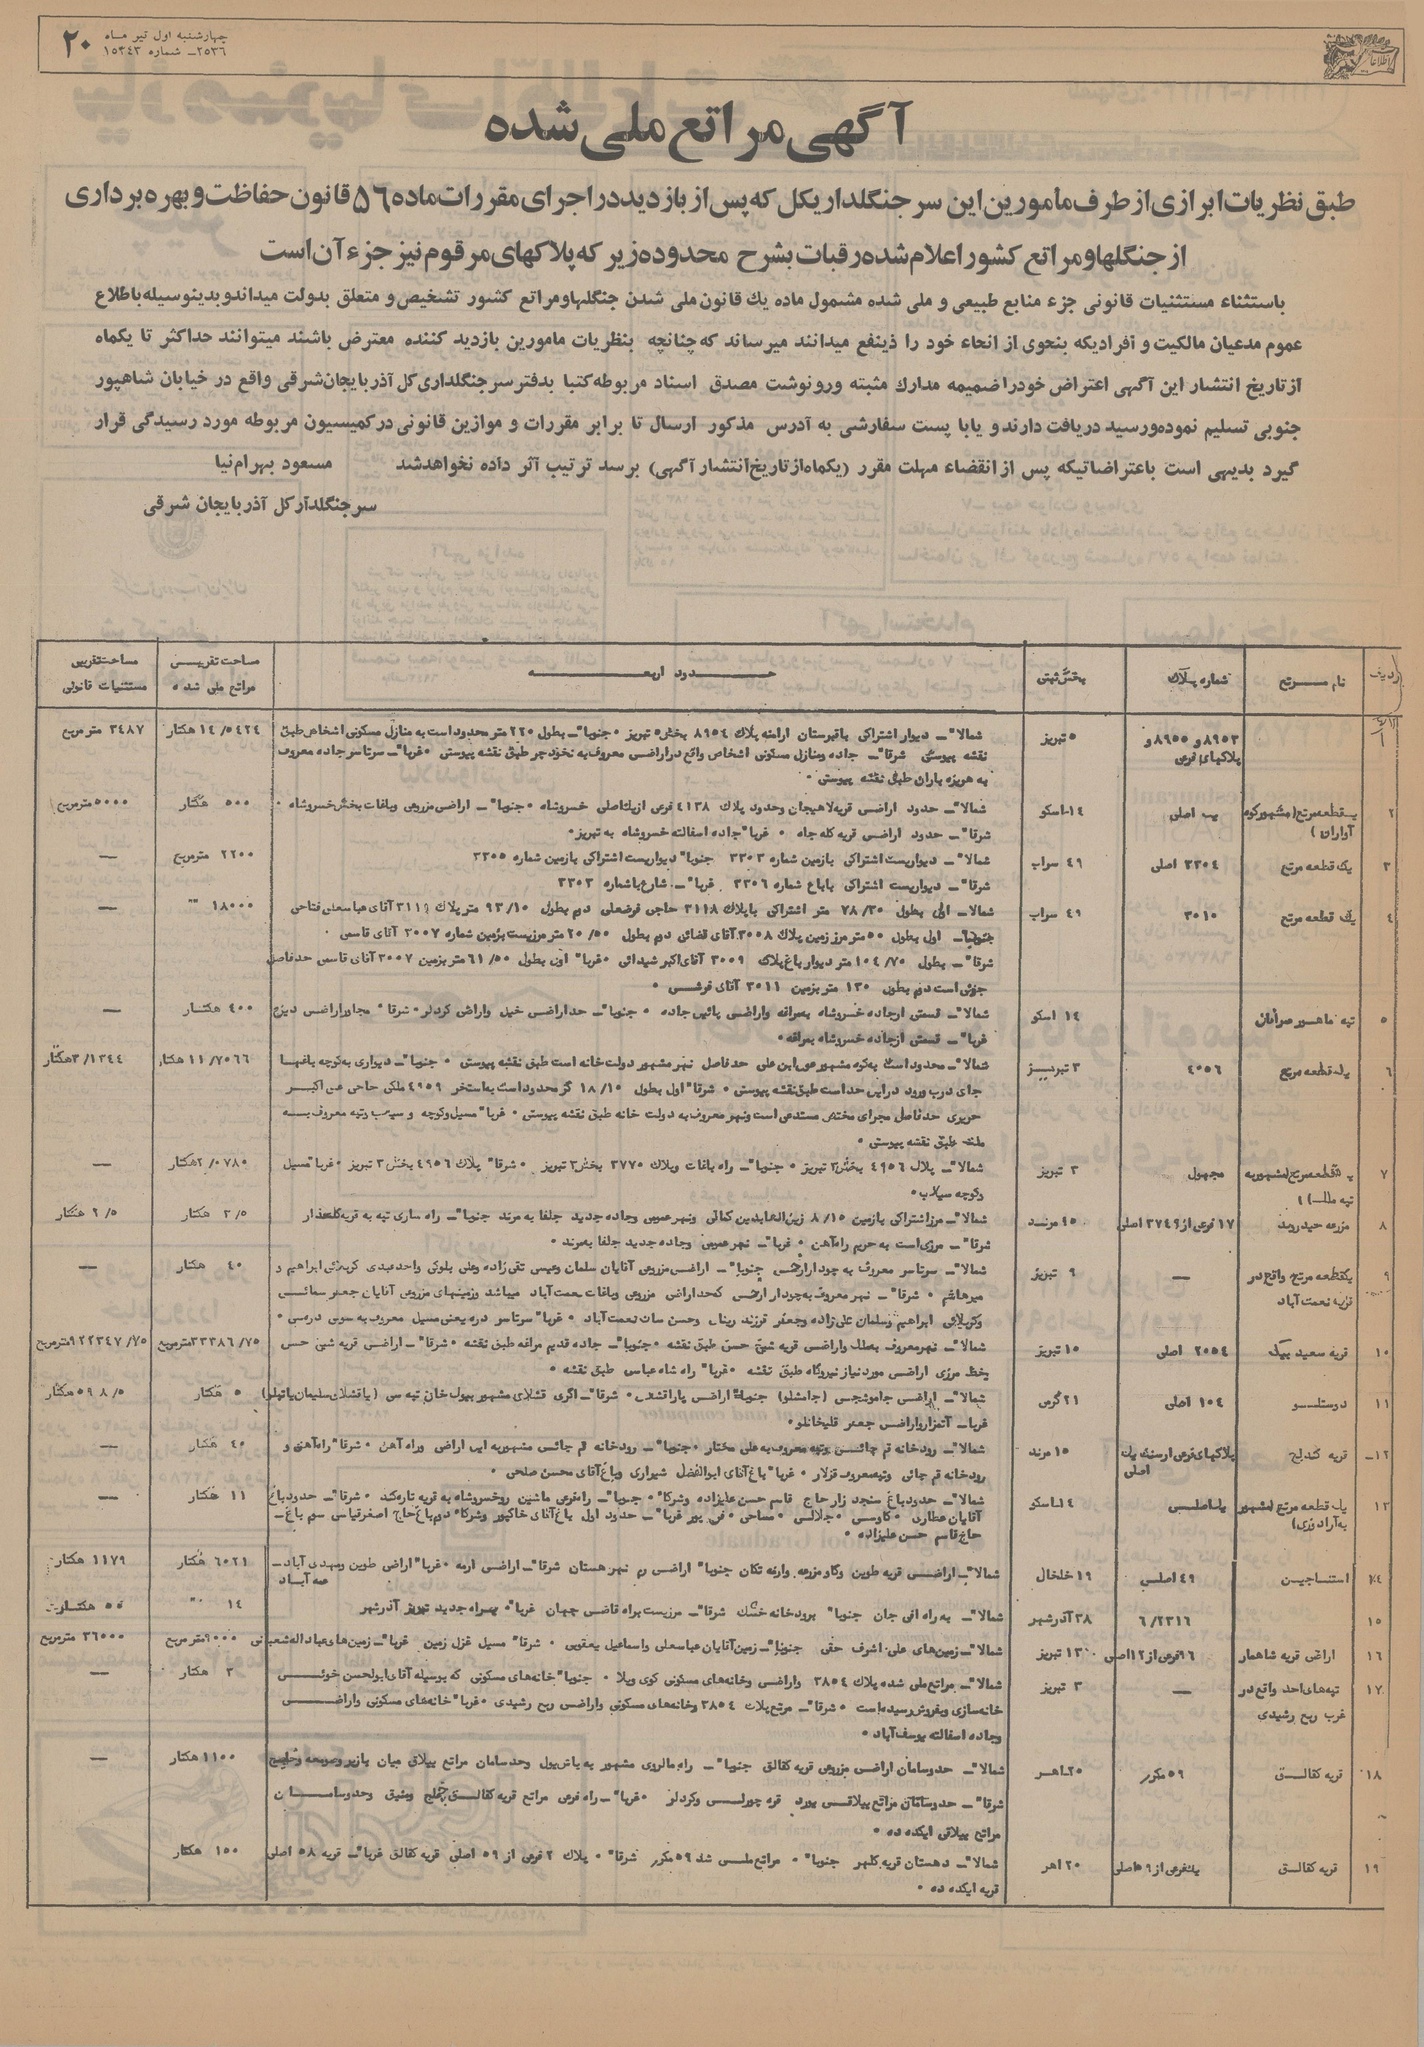 چهارشنبه اول تیر ماه
۲۵۳۶ـ شماره ۱۵۳۴۳
۲۰
اطلاعات
آگهی مراتع ملی شده
طبق نظریات ابرازی از طرف مأمورین این سرجنگلداریکل که پس از بازدید در اجرای مقررات ماده ۵۶ قانون حفاظت و بهره برداری
از جنگلها و مراتع کشور اعلام شده رقبات بشرح محدوده زیر که پلاکهای مرقوم نیز جزء آن است
باستثناء مستثنیات قانونی جزء منابع طبیعی و ملی شده مشمول ماده یك قانون ملی شدن جنگلها و مراتع کشور تشخیص و متعلق بدولت میداند و بدینوسیله باطلاع
عموم مدعیان مالکیت و افرادیکه بنحوی از انحاء خود را ذینفع میدانند میرساند که چنانچه بنظریات مامورین بازدید کننده معترض باشند میتوانند حداکثر تا یکماه
از تاریخ انتشار این آگهی اعتراض خود را ضمیمه مدارك مثبته و رونوشت مصدق اسناد مربوطه کتبا بدفتر سرجنگلداری کل آذربایجان شرقی واقع در خیابان شاهپور
جنوبی تسلیم نموده و رسید دریافت دارند و یا با پست سفارشی به آدرس مذکور ارسال تا برابر مقررات و موازین قانونی در کمیسیون مربوطه مورد رسیدگی قرار
گیرد بدیهی است باعتراضاتیکه پس از انقضاء مهلت مقرر (یکماه از تاریخ انتشار آگهی) برسد ترتیب اثر داده نخواهد شد مسعود بهرام نیا
سرجنگلدار کل آذربایجان شرقی
ردیف نام مرتع شماره پلاك بخش ثبتی حدود اربعه مساحت تقریبی مراتع ملی شده مساحت تقریبی مستثنیات قانونی
۱ ۸۹۵۳ و ۸۹۵۵ و پلاکهای فرعی ۵ تبریز شمالا"ـ دیوار اشتراکی باقبرستان ارامنه پلاك ۸۹۵۴ بخش ۵ تبریز ۰ جنوبا"ـ بطول ۲۲۰ متر محدود است به منازل مسکونی اشخاص طبق ۱۴/۵۴۲۴ هکتار ۳۴۸۷ متر مربع
نقشه پیوستی شرقا"ـ جاده ومنازل مسکونی اشخاص واقع در اراضی معروف به نخودچر طبق نقشه پیوستی ۰ غربا"ـ سرتاسر جاده معروف
به هریزه باران طبق نقشه پیوستی ۰
۲ یك قطعه مرتع (مشهور کوه آواران) اصلی ۱۴ـ اسکو شمالا"ـ حدود اراضی قریه لاهیجان وحدود پلاك ۴۱۳۸ فرعی از یك اصلی خسروشاه ۰ جنوبا"ـ اراضی مزروعی وباغات بخش خسروشاه ۰ ۵۰۰ هکتار ۵۰۰۰ متر مربع
شرقا"ـ حدود اراضی قریه کله جاه ۰ غربا" جاده اسفالته خسروشاه به تبریز ۰
۳ یك قطعه مرتع ۳۳۰۴ اصلی ۴۹ سراب شمالا"ـ دیواریست اشتراکی بازمین شماره ۳۳۰۳ جنوبا" دیواریست اشتراکی بازمین شماره ۳۳۰۵ ۲۲۰۰ متر مربع —
شرقا"ـ دیواریست اشتراکی باباغ شماره ۳۳۰۶ غربا"ـ شارع باشماره ۳۳۰۳
۴ یك قطعه مرتع ۳۰۱۰ ۴۹ سراب شمالا"ـ اول بطول ۷۸/۳۰ متر اشتراکی با پلاك ۳۱۱۸ حاجی فرضعلی دوم بطول ۹۳/۱۰ متر پلاك ۳۱۱۹ آقای عباسعلی فتاحی ۱۸۰۰۰ "" —
جنوبا"ـ اول بطول ۵۰ متر مرز زمین پلاك ۳۰۰۸ آقای قضائی دوم بطول ۲۰/۵۰ متر مرزیست بزمین شماره ۳۰۰۷ آقای قاسمی ۰
شرقا"ـ بطول ۱۰۴/۷۰ متر دیوار باغ پلاك ۳۰۰۹ آقای اکبر شیدائی ۰ غربا" اول بطول ۶۱/۵۰ متر بزمین ۳۰۰۷ آقای قاسمی حد فاصل
جوئی است دوم بطول ۱۳۰ متر بزمین ۳۰۱۱ آقای قرشی ۰
۵ تپه ماهور ۱۴ اسکو شمالا"ـ قسمتی از جاده خسروشاه بمراغه واراضی پائین جاده ۰ جنوبا"ـ حد اراضی خیل واراضی کردلر ۰ شرقا" مجاور اراضی دیزج ۴۰۰ هکتار —
غربا"ـ قسمتی از جاده خسروشاه بمراغه ۰
۶ یك قطعه مرتع ۴۰۵۶ ۳ تبریز شمالا"ـ محدود است به کوه مشهور عون ابن علی حد فاصل نهر مشهور دولت خانه است طبق نقشه پیوستی ۰ جنوبا"ـ دیواری به کوچه باغیها ۱۱/۷۰۶۶ هکتار ۳/۱۳۴۴ هکتار
جای درب ورود در این حد است طبق نقشه پیوستی ۰ شرقا" اول بطول ۱۸/۱۰ گز محدود است به استخر ۴۹۵۹ ملکی حاجی علی اکبر
حریری حد فاصل مجرای مختص مستدعی است ونهر معروف به دولت خانه طبق نقشه پیوستی ۰ غربا" مسیل وکوچه و وتپه معروف به
طبق نقشه پیوستی ۰
۷ یك قطعه مرتع (مشهور به تپه ) مجهول ۳ تبریز شمالا"ـ پلاك ۴۹۵۶ بخش ۳ تبریز ۰ جنوبا"ـ راه باغات وپلاك ۳۷۷۰ بخش ۳ تبریز ۰ شرقا" پلاك ۴۹۵۶ بخش ۳ تبریز ۰ غربا" مسیل ۲/۰۷۸۰ هکتار —
وکوچه سیلاب ۰
۸ مزرعه حیدروند ۱۷ فرعی از ۳۷۴۹ اصلی ۴۵ مرند شمالا"ـ مرز اشتراکی بازمین ۸/۱۵ زین العابدین کمالی ونهر عمومی وجاده جدید جلفا به مرند جنوبا"ـ راه ساری تپه به قریه گلعذار ۲/۵ هکتار ۲/۵ هکتار
شرقا"ـ مرزی است به حریم راه آهن ۰ غربا"ـ نهر عمومی وجاده جدید جلفا به مرند ۰
۹ یکقطعه مرتع واقع در قریه نعمت آباد — ۹ تبریز شمالا"ـ سرتاسر معروف به چودار ارخی جنوبا"ـ اراضی مزروعی آقایان سلمان وعیسی تقی زاده وعلی بلوکی واحد عبدی کربلائی ابراهیم و ۴۰ هکتار —
میرهاشم ۰ شرقا"ـ نهر معروف به چودار ارخی که حد اراضی مزروعی وباغات نعمت آباد میباشد وزمینهای مزروعی آقایان جعفر
وکربلائی ابراهیم وسلمان علی زاده وجعفر فرزند وحسن نعمت آباد ۰ غربا" سرتاسر دره یعنی مسیل معروف به سونی درسی ۰
۱۰ قریه سعید بیك ۲۰۵۴ اصلی ۱۵ تبریز شمالا"ـ نهر معروف واراضی قریه شیخ حسن طبق نقشه ۰ جنوبا"ـ جاده قدیم مراغه طبق نقشه ۰ شرقا"ـ اراضی قریه شیخ حسن ۳۳۳۸۶/۷۵ متر مربع ۹۲۲۳۴۷/۷۵ متر مربع
بخط مرزی اراضی مورد نیاز نیروگاه طبق نقشه ۰ غربا" راه شاه عباسی طبق نقشه ۰
۱۱ دوستلو ۱۰۴ اصلی ۲۱ گرمی شمالا"ـ اراضی جاموشچی (جامشلو) جنوبا" اراضی ۰ شرقا"ـ اگری قشلاق مشهور بیوك خان تپه سی (یا قشلاق سلیمان یا تپه لو) ۵ هکتار ۵۹۸/۵ هکتار
غربا"ـ آتمزار واراضی جعفر قلیخانلو ۰
۱۲ـ قریه کندلج پلاکهای فرعی از اصلی ۱۵ مرند شمالا"ـ رودخانه قم چائی وتپه معروف به علی مختار ۰ جنوبا"ـ رودخانه قم چائی مشهور به ایی اراضی وراه آهن ۰ شرقا" راه آهن و ۴۰ هکتار —
رودخانه قم چائی وتپه معروف قزلار ۰ غربا" باغ آقای ابوالفضل شیرازی وباغ آقای محسن صلحی ۰
۱۳ یك قطعه مرتع (مشهور به آزاد دری) یك اصلی ۱۴ـ اسکو شمالا"ـ حدود باغ سنجد زار حاج قاسم حسن علیزاده وشرکا" ۰ جنوبا"ـ راه فرعی ماشین رو خسروشاه به قریه تازه کند ۰ شرقا"ـ حدود باغ ۱۱ هکتار —
آقایان عطاری ۰ کاوسی ۰ جلالی ۰ مساحی ۰ فن پور غربا"ـ حدود اول باغ آقای خاکپور وشرکا" دوم باغ حاج اصغر قیاسی سوم باغ ـ
حاج قاسم حسن علیزاده ۰
۱۴ استاجین ۴۹ اصلی ۱۹ خلخال شمالا"ـ اراضی قریه طوین وکاو مزرعه واریه تکان جنوبا" اراضی نهر هستان شرقا"ـ اراضی ارمه ۰ غربا" اراضی طوین ومهدی آباد ـ ۶۰۲۱ هکتار ۱۱۷۹ هکتار
عمه آباد
۱۵ ۶/۲۳۱۶ ۳۸ آذرشهر شمالا"ـ به راه اقی جان جنوبا" برودخانه خشك شرقا"ـ مرزیست براه قاضی جهان غربا" بهراه جدید تبریز آذرشهر ۱۴ "" ۵۵ هکتار
۱۶ اراضی قریه شاهمار ۹۶ فرعی از ۱۲ اصلی ۱۳ تبریز شمالا"ـ زمین های علی اشرف حقی جنوبا"ـ زمین آقایان عباسعلی واسماعیل یعقوبی ۰ شرقا" مسیل غزل زمین غربا"ـ زمین های عباداله شعبانی ۹۰۰۰ متر مربع ۳۶۰۰۰ متر مربع
۱۷ تپه های احد واقع در غرب ربع رشیدی — ۳ تبریز شمالا"ـ مراتع ملی شده پلاك ۳۸۵۴ واراضی وخانه های مسکونی کوی ویلا ۰ جنوبا" خانه های مسکونی که بوسیله آقای ابوالحسن خوئی ۳ هکتار —
خانه سازی وبفروش رسیده است ۰ شرقا"ـ مرتع پلاك ۳۸۵۴ وخانه های مسکونی واراضی ربع رشیدی ۰ غربا" خانه های مسکونی واراضی
وجاده اسفالته یوسف آباد ۰
۱۸ قریه کقالق ۵۹ مکرر ۲۰ـ اهر شمالا"ـ حد وسامان اراضی مزروعی قریه کقالق جنوبا"ـ راه مالروی مشهور به یاش یول وحد سامان مراتع ییلاق میان ۱۱۰۰ هکتار —
شرقا"ـ حد وسامان مراتع ییلاقی یورد قره چورلی وکردلر ۰ غربا"ـ راه فرعی مراتع قریه کقالق وحد وسامان
مراتع ییلاقی ایکده ده ۰
۱۹ قریه کقالق یك فرعی از ۵۹ اصلی ۲۰ اهر شمالا"ـ دهستان قریه کلهر جنوبا" ۰ مراتع ملی شده ۵۹ مکرر شرقا" ۰ پلاك ۲ فرعی از ۵۹ اصلی قریه کقالق غربا"ـ قریه ۵۸ اصلی ۱۵۰ هکتار
قریه ایکده ده ۰